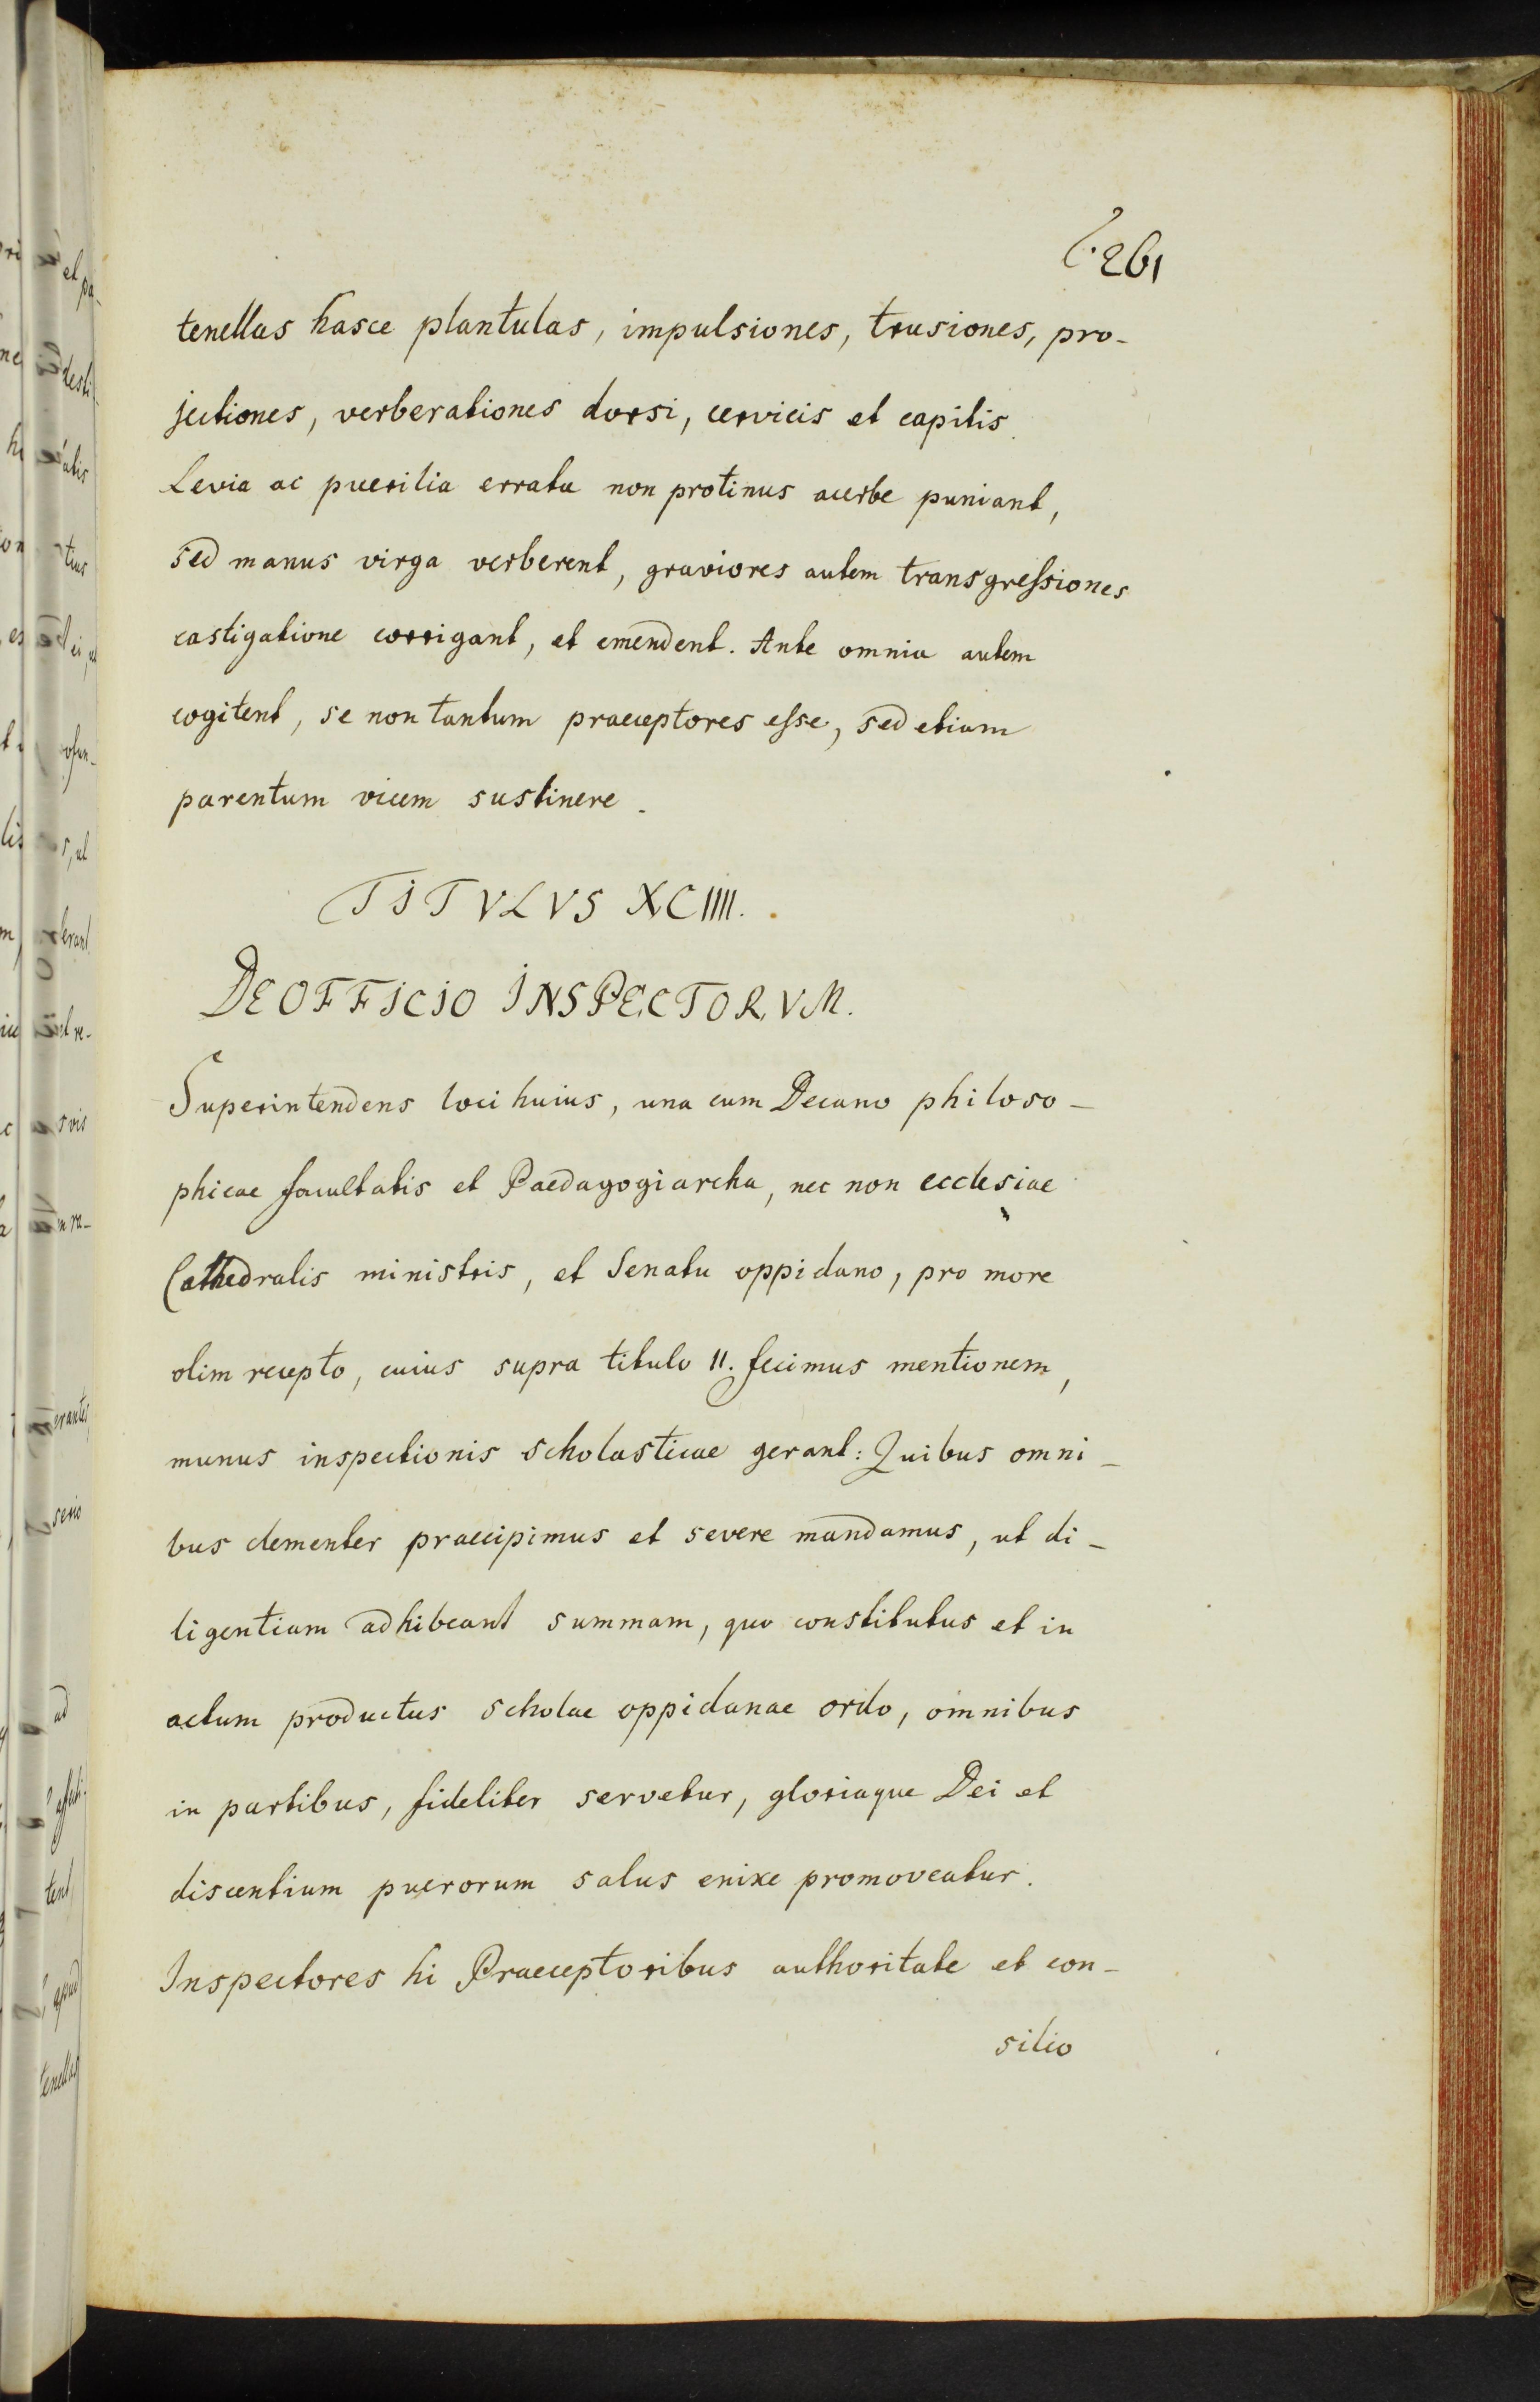 261
tenellas hasce plantulas, impulsiones, trusiones, pro-
jectiones, verberationes dorsi, cervicis et capitis.
Levia ac puerilia errata non protinus acerbe puniant,
sed manus virga verberent, graviores autem transgreſsiones
castigatione corrigant, et emendent. Ante omnia autem
cogitent, se non tantum praeceptores eſse, sed etiam
parentum vicem sustinere.
TITVLVS XCIIII.
DE OFFICIO INSPECTORVM.
Superintendens loci huius, una cum Decano philoso-
phicae facultatis et Paedagogiarcha, nec non ecclesiae
Cathedralis ministris, et Senatu oppidano, pro more
olim recepto, cuius supra titulo II. fecimus mentionem,
munus inspectionis scholasticae gerant: Quibus omni-
bus clementer praecipimus et severe mandamus, ut di-
ligentiam adhibeant summam, quo constitutus et in
actum productus scholae oppidanae ordo, omnibus
in partibus, fideliter servetur, gloriaque Dei et
discentium puerorum salus enixe promoveatur.
Inspectores hi Praeceptoribus authoritate et con-
silio